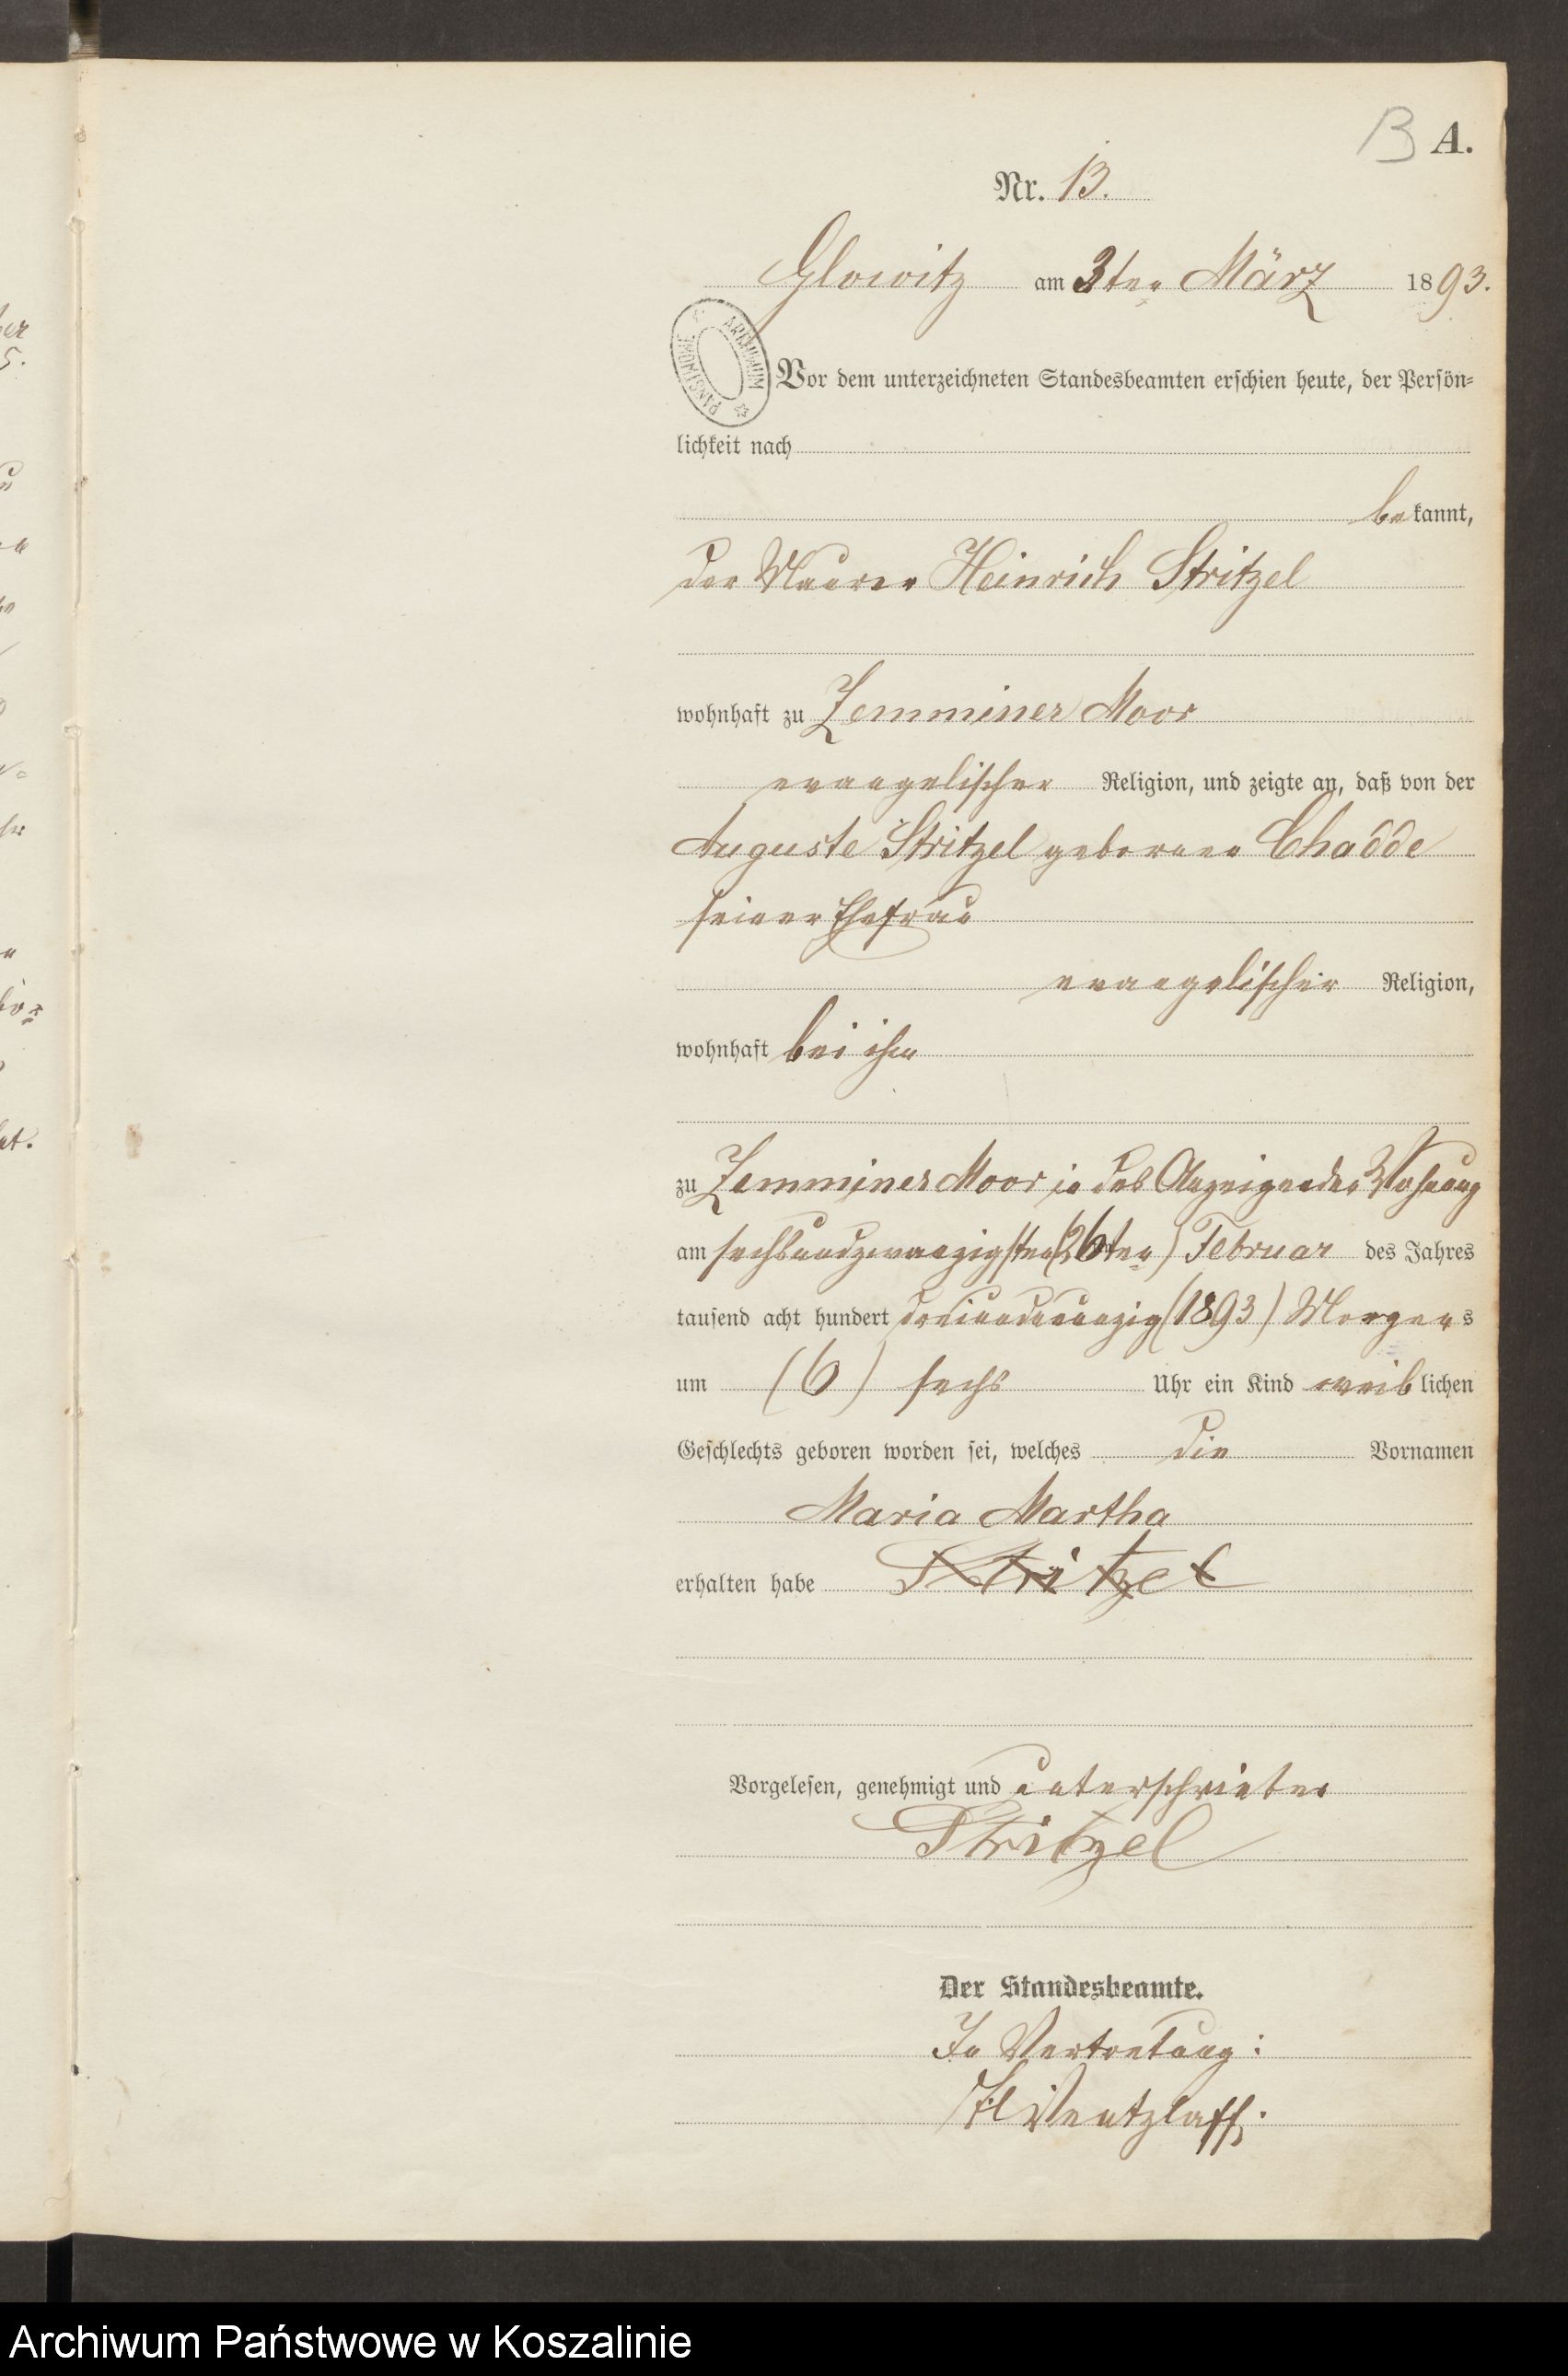 13 A.
Nr. 13.
Glowitz am 3ten März 1893.
ARCHIWUM PAŃSTWOWE
Vor dem unterzeichneten Standesbeamten erschien heute, der Persön=
lichkeit nach
bekannt,
der Maurer Heinrich Stritzel
wohnhaft zu Zemminer Moor
evangelischer Religion, und zeigte an, daß von der
Auguste Stritzel geborenen Chadde
seiner Ehefrau
evangelischer Religion,
wohnhaft bei ihm
zu Zemminer Moor in des Anzeigenden Wohnung
am sechsundzwanzigsten (26ten) Februar des Jahres
tausend acht hundert dreiundneunzig (1893) Morgens
um (6) sechs Uhr ein Kind weiblichen
Geschlechts geboren worden sei, welches die Vornamen
Maria Martha
erhalten habe Stritzel
Vorgelesen, genehmigt und unterschrieben
Stritzel
Der Standesbeamte.
In Vertretung:
Wentzlaff.
Archiwum Państwowe w Koszalinie